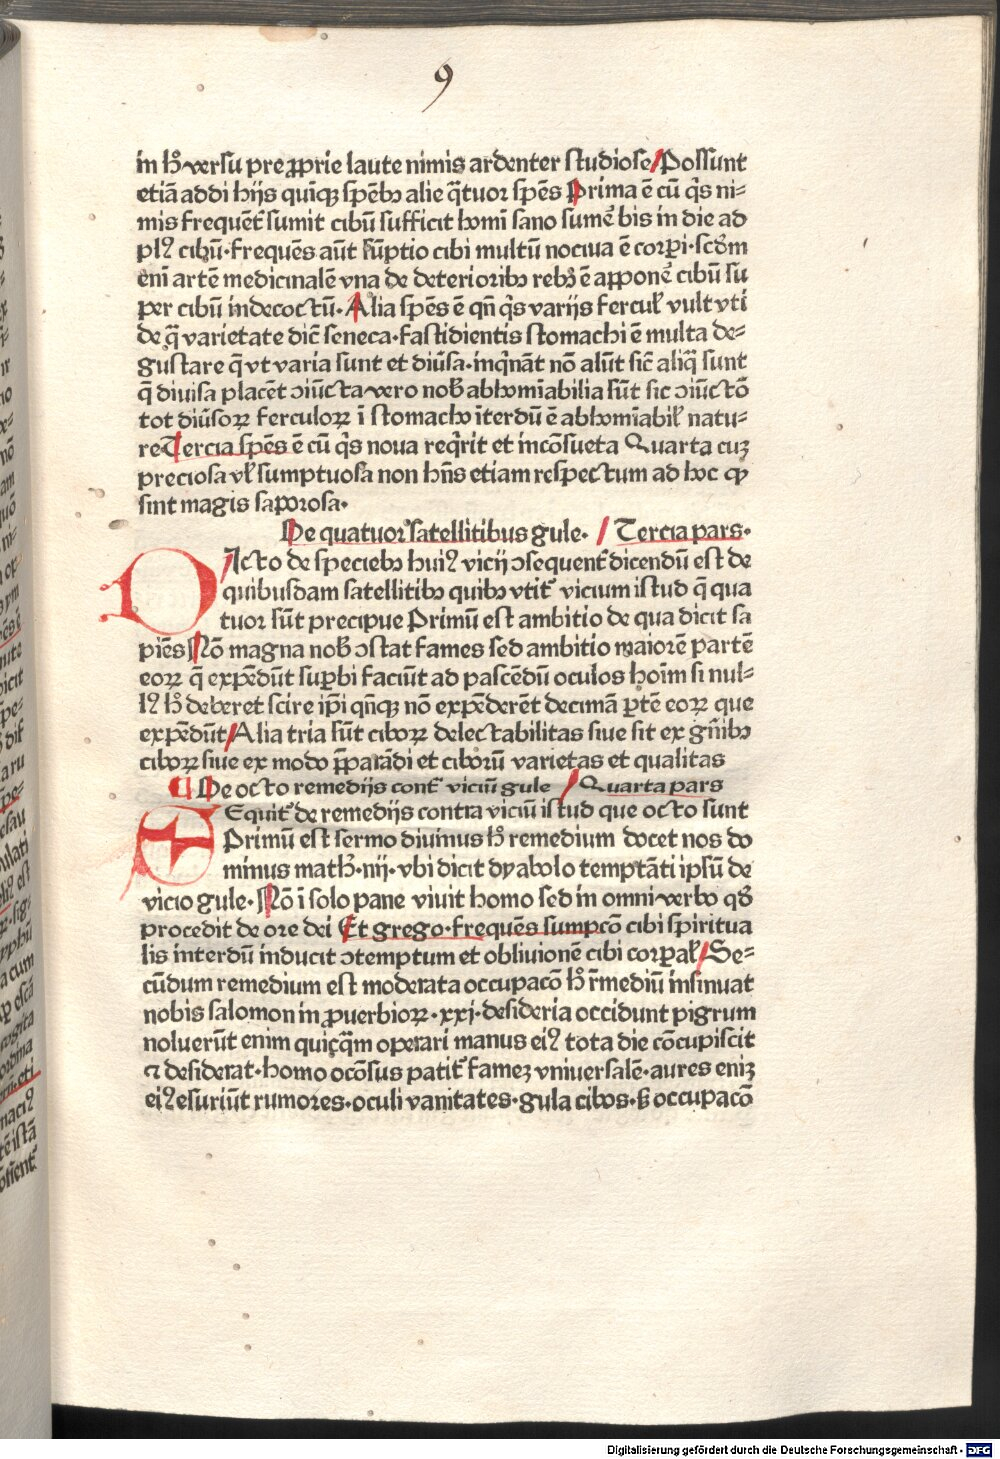 9
in hͦ versu pre ꝓprie laute nimis ardenter studiose Possunt
etiā addi hijs quinqȝ spēbꝰ alie q̄tuor spēs Prima ē cū qͥs ni-
mis frequēt͛ sumit cibū sufficit homī sano sume͛ bis in die ad
plꝰ cibū·frequēs aūt sūptio cibi multū nociua ē corꝑi·scd̄m
enī artē medicinalē vna de deterioribꝰ rebꝰ ē apponē cibū su
per cibū indecoctū·Alia spēs ē qn̄ qͥs varijs fercul̕ vult vti
de q̄ varietate dic̄ seneca·fastidientis stomachi ē multa de-
gustare q̄ vt varia sunt et diūsa·inqͥnāt nō alūt sic̄ aliq̄ sunt
q̄ diuisa placēt ɔiūcta vero nob̄ abhomīabilia sūt sic ɔiūctō
tot diūsoꝝ ferculoꝝ ī stomacho īterdū ē abhomīabil̕ natu-
re Tercia spēs ē cū qͥs noua reqͥrit et incōsueta Quarta cuȝ
preciosa vl̕ sumptuosa non hn̄s etiam respectum ad hoc ꝙ
sint magis saporosa·
De quatuor satellitibus gule· Tercia pars·
DIcto de speciebꝰ huiꝰ vicij ɔsequent͛ dicendū est de
quibusdam satellitibꝰ quibꝰ vtit͛ vicium istud q̄ qua
tuor sūt precipue Primū est ambitio de qua dicit sa
piēs Nō magna nob̄ ɔstat fames sed ambitio maiorē partē
eoꝝ q̄ expēdūt suꝑbi faciūt ad pascēdū oculos hoīm si nul-
lꝰ hͦ deberet scire ip̄i qn̄qȝ nō expēderēt decimā ꝑtē eoꝝ que
expēdūt Alia tria sūt ciboꝝ delectabilitas siue sit ex gn̄ibꝰ
ciboꝝ siue ex modo p̄parādi et ciborū varietas et qualitas
¶ De octo remedijs cont͛ viciū gule Quarta pars
SEquit͛ de remedijs contra viciū istud que octo sunt
Primū est sermo diuinus hͦ remedium docet nos do
minus math̄·iiij·vbi dicit dyabolo temptāti ipsū de
vicio gule·Nō ī solo pane viuit homo sed in omni verbo qd̄
procedit de ore dei Et grego·frequēs sumpcō cibi spiritua
lis interdū inducit ɔtemptum et obliuionē cibi corꝑal̕ Se-
cūdum remedium est moderata occupacō hͦ r̄mediū insinuat
nobis salomon in ꝓuerbioꝝ·xxj·desideria occidunt pigrum
noluerūt enim quicq̄m operari manus eiꝰ tota die cōcupiscit
et desiderat·homo ocōsus patit͛ fameȝ vniuersalē·aures eniȝ
eiꝰ esuriūt rumores·oculi vanitates·gula cibos·ß occupacō
Digitalisierung gefördert durch die Deutsche Forschungsgemeinschaft · DFG